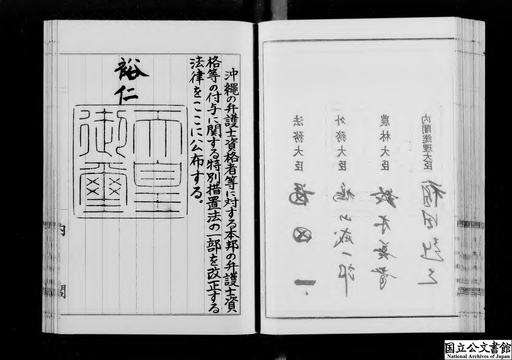 内閣総理大臣
農林大臣
外務大臣 鳩山威一郎
法務大臣 福田一
沖縄の弁護士資格者等に対する本邦の弁護士資
格等の付与に関する特別措置法の一部を改正する
法律をここに公布する。
裕仁
天皇
御璽
内閣
国立公文書館
National Archives of Japan